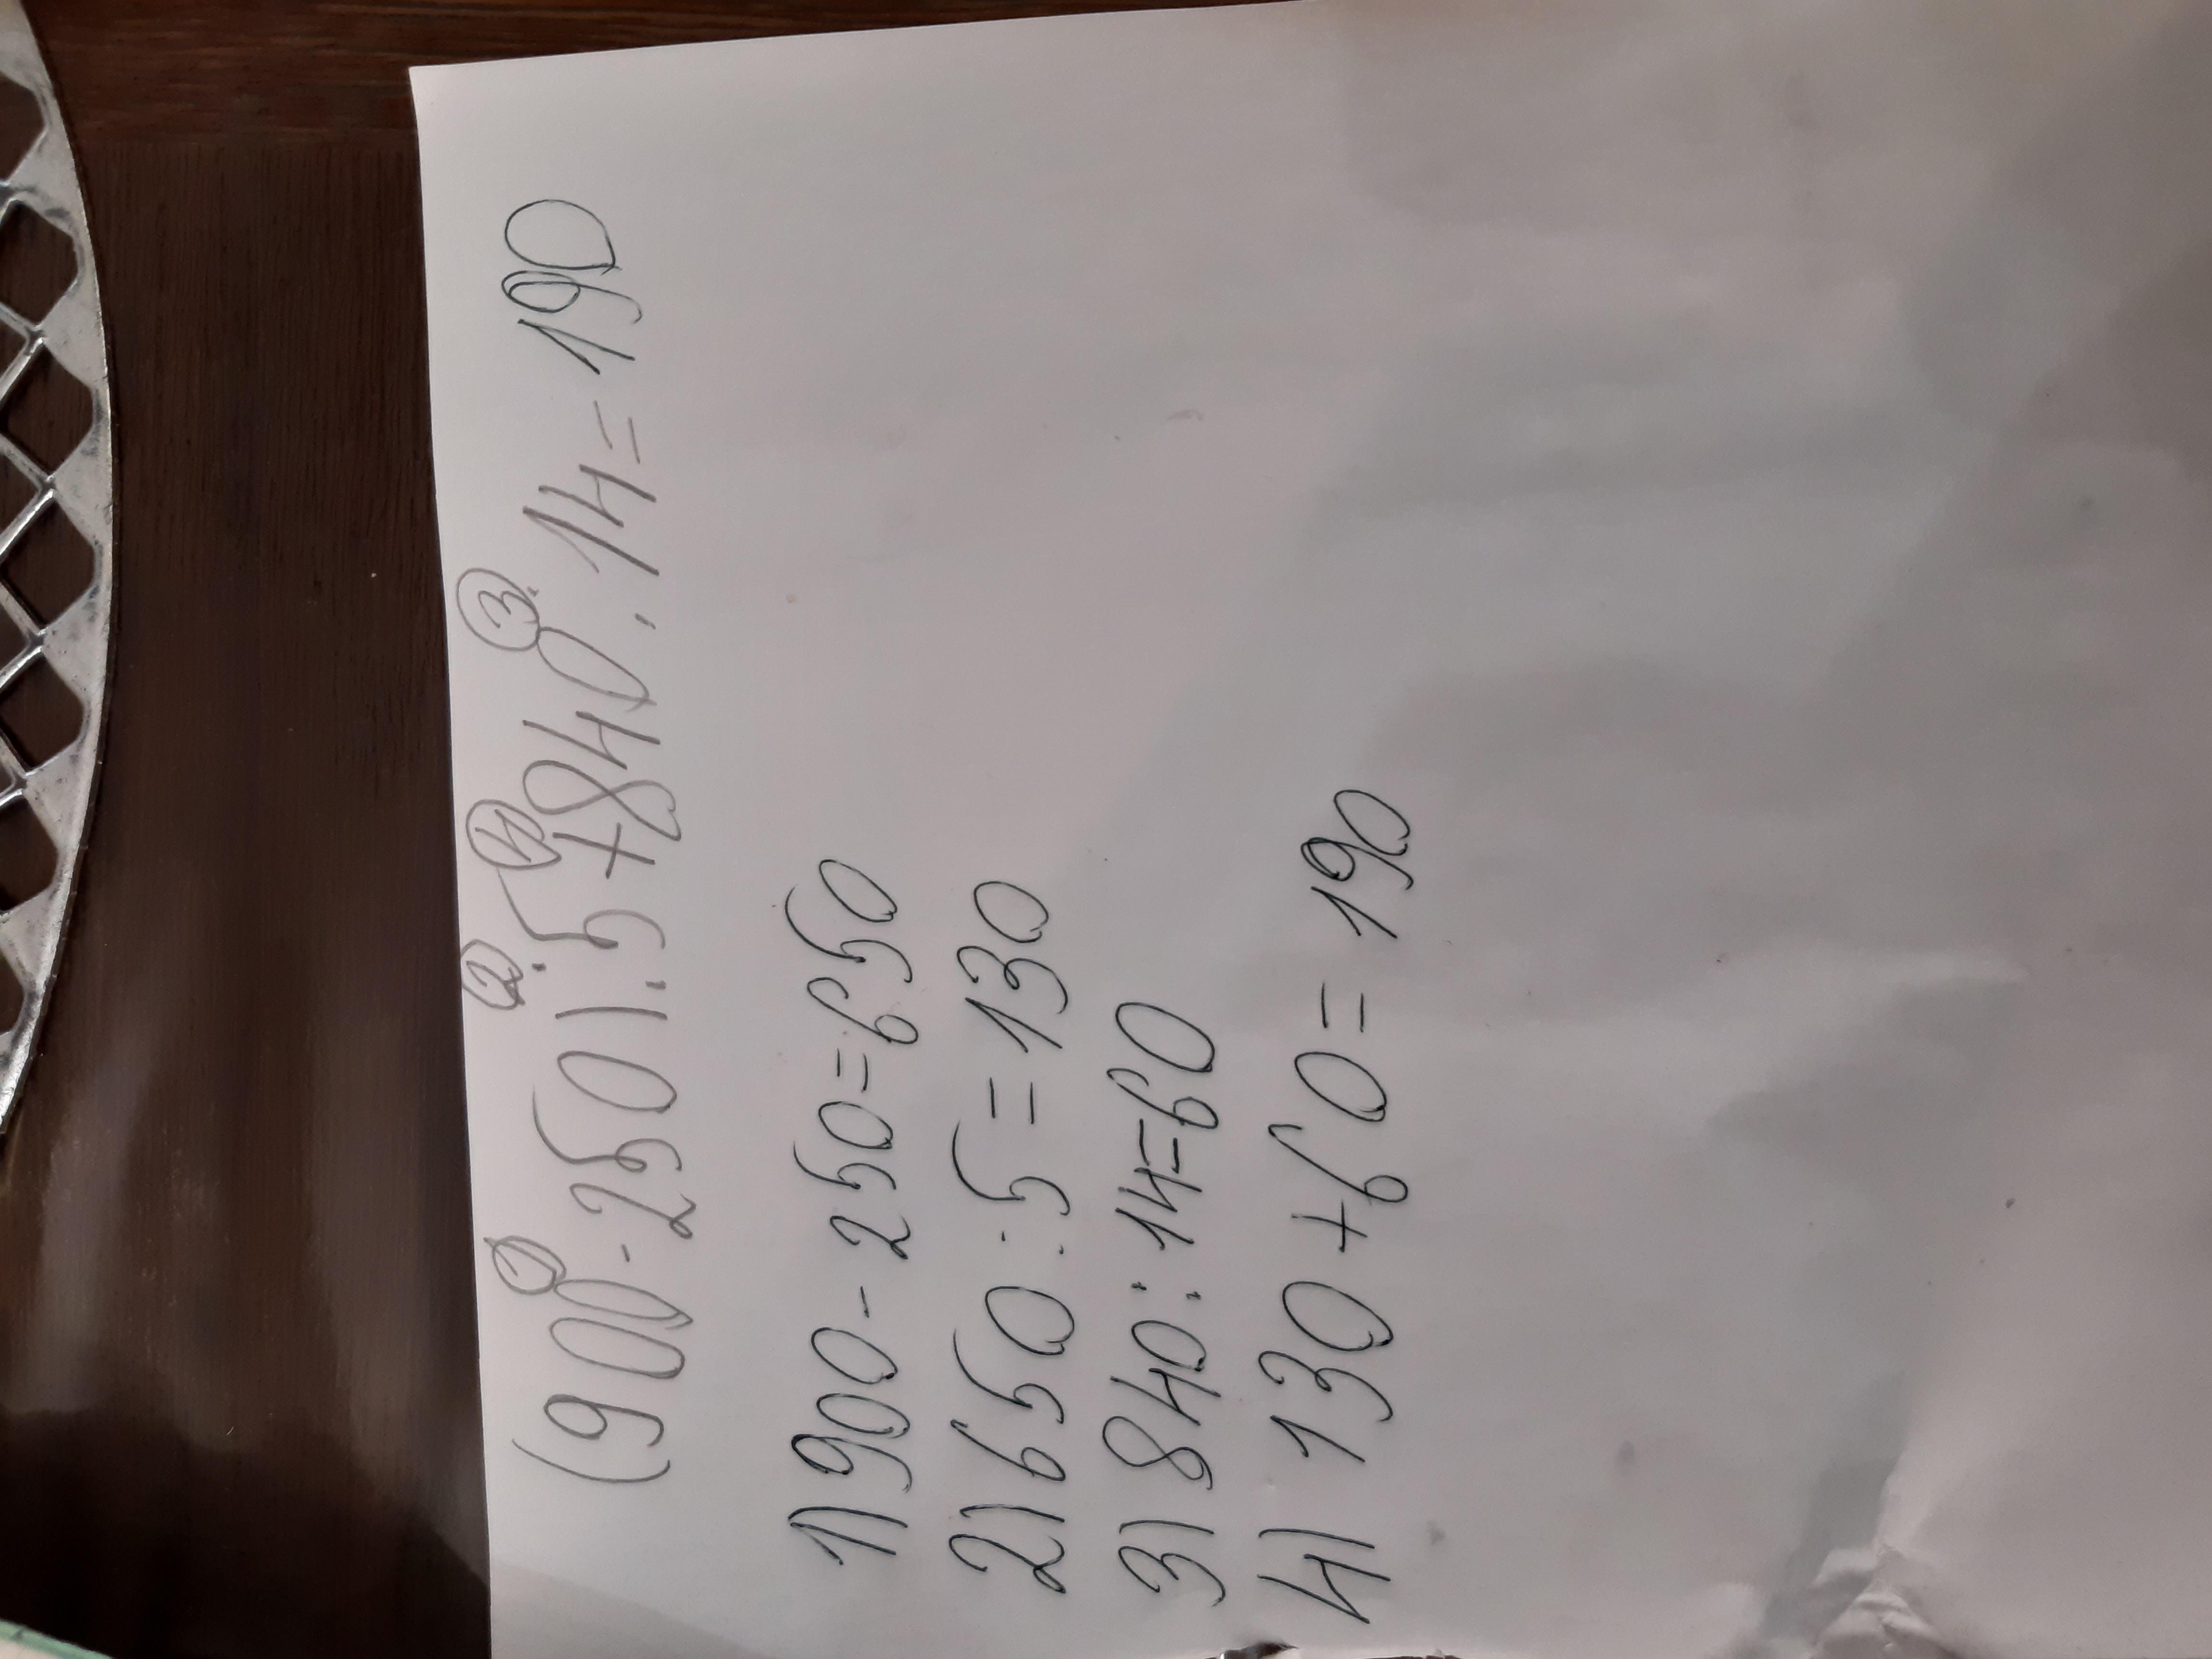 (900-250):5+840:14=190
1) 900-250=650
2) 650:5=130
3) 840:14=60
4) 130+60=190